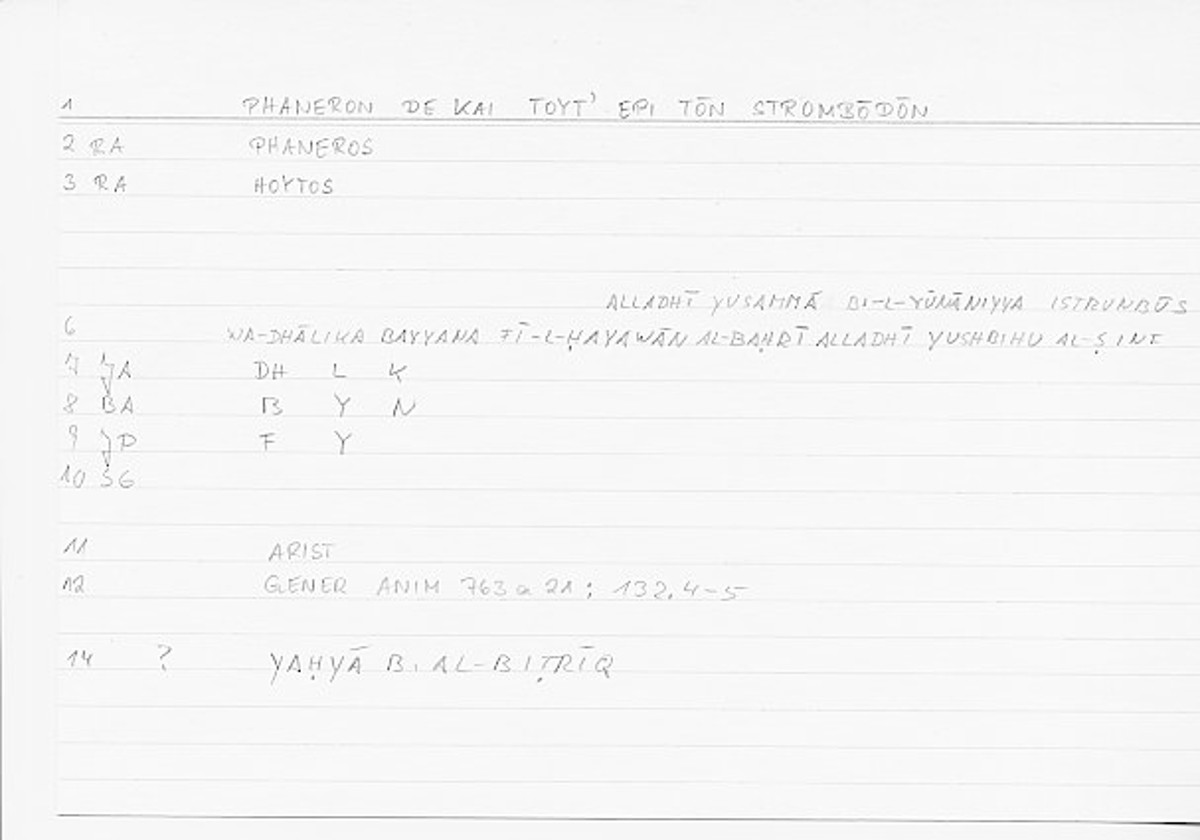 1 PHANERON DE KAI TOYT' EPI TŌN STROMBŌDŌN
2 RA PHANEROS
3 RA HOYTOS
ALLADHĪ YUSAMMĀ BI-L-YŪNĀNIYYA ISTRUNBŪS
6 WA-DHĀLIKA BAYYANA FĪ-L-ḤAYAWĀN AL-BAḤRĪ ALLADHĪ YUSHBIHU
7 JA DH L K
8 BA B Y N
9 JD F Y
10 SG
11 ARIST
12 GENER ANIM 763a 21; 132.4-5
14 ? YAḤYĀ B. AL-BIṬRĪQ